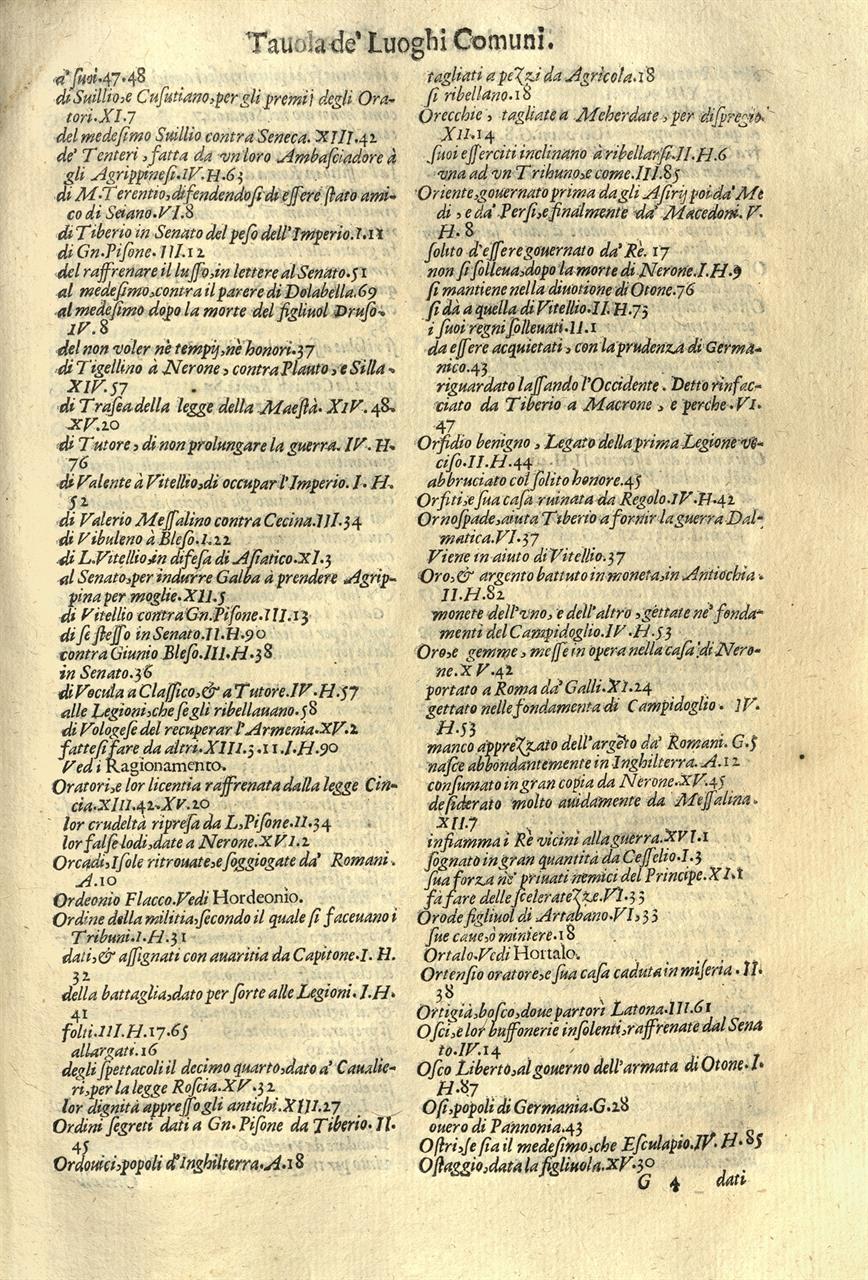 Tauola de' Luoghi Comuni.
a' suoi.47.48
di Suillio,e Cusutiano,per gli premij degli Ora-
tori.XI.7
del medesimo Suillio contra Seneca. XIII.42
de' Tenteri, fatta da vn loro Ambasciadore à
gli Agrippinesi.IV.H.63
di M.Terentio,difendendosi di essere stato ami-
co di Seiano.VI.8
di Tiberio in Senato del peso dell'Imperio.I.11
di Gn.Pisone. III.12
del raffrenare il lusso,in lettere al Senato.51
al medesimo,contra il parere di Dolabella.69
al medesimo dopo la morte del figliuol Druso.
IV.8
del non voler nè tempij,nè honori.37
di Tigellino à Nerone, contra Plauto, e Silla.
XIV.57
di Trasea della legge della Maestà. XIV.48.
XV.20
di Tutore, di non prolungare la guerra. IV. H.
76
di Valente à Vitellio,di occupar l'Imperio. I. H.
52
di Valerio Messalino contra Cecina.III.34
di Vibuleno à Bleso.I.22
di L.Vitellio,in difesa di Asiatico.XI.3
al Senato,per indurre Galba à prendere Agrip-
pina per moglie.XII.5
di Vitellio contra Gn.Pisone.III.13
di se stesso in Senato.II.H.90
contra Giunio Bleso.III.H.38
in Senato.36
di Vocula a Classico,& a Tutore.IV.H.57
alle Legioni,che se gli ribellauano.58
di Vologese del recuperar l'Armenia.XV.2
fattesi fare da altri.XIII.3.11.I.H.90
Vedi Ragionamento.
Oratori,e lor licentia raffrenata dalla legge Cin-
cia.XIII.42.XV.20
lor crudeltà ripresa da L,Pisone.II.34
lor false lodi,date a Nerone.XVI.2
Orcadi,Isole ritrouate,e soggiogate da' Romani.
A.10
Ordeonio Flacco.Vedi Hordeonio.
Ordine della militia,secondo il quale si faceuano i
Tribuni.I.H.31
dati,& assignati con auaritia da Capitone.I. H.
32
della battaglia,dato per sorte alle Legioni. I.H.
41
folti.III.H.17.65
allargati.16
degli spettacoli il decimo quarto,dato a' Caualie-
ri,per la legge Roscia.XV.32
lor dignità appresso gli antichi.XIII.27
Ordini segreti dati a Gn.Pisone da Tiberio. II.
45
Ordouici,popoli d'Inghilterra.A.18
tagliati a pezzi da Agricola.18
si ribellano.18
Orecchie, tagliate a Meherdate, per dispregio.
XII.14
suoi esserciti inclinano à ribellarsi.II.H.6
vna ad vn Tribuno,e come.III.85
Oriente,gouernato prima dagli Asirij poi da' Me
di, e da' Persi,e finalmente da' Macedoni. V.
H.8
solito d'essere gouernato da' Rè. 17
non si solleua,dopo la morte di Nerone.I.H.9
si mantiene nella diuotione di Otone.76
si dà a quella di Vitellio.II.H.73
i suoi regni solleuati.II.1
da essere acquietati, con la prudenza di Germa-
nico.43
riguardato lassando l'Occidente. Detto rinfac-
ciato da Tiberio a Macrone, e perche.VI.
47
Orfidio benigno, Legato della prima Legione ve-
ciso.II.H.44
abbruciato col solito honore.45
Orfiti,e sua casa ruinata da Regolo.IV.H.42
Ornospade,aiuta Tiberio a fornir la guerra Dal-
matica.VI.37
Viene in aiuto di Vitellio.37
Oro,& argento battuto in moneta,in Antiochia.
II.H.82
monete dell'vno, e dell'altro, gettate ne' fonda-
menti del Campidoglio.IV.H.53
Oro,e gemme, messe in opera nella casa di Nero-
ne.XV.42
portato a Roma da' Galli.XI.24
gettato nelle fondamenta di Campidoglio. IV.
H.53
manco apprezzato dell'argēto da' Romani. G.5
nasce abbondantemente in Inghilterra. A.12
consumato in gran copia da Nerone.XV.45
desiderato molto auidamente da Messalina.
XII.7
infiamma i Rè vicini alla guerra.XVI.1
sognato in gran quantità da Cessellio.I.3
sua forza ne' priuati nemici del Principe.XI.1
fà fare delle sceleratezze.VI.33
Orode figliuol di Artabano.VI,33
sue caue,ò miniere.18
Ortalo.Vedi Hortalo.
Ortensio oratore,e sua casa caduta in miseria. II.
38
Ortigià,bosco,doue partorì Latona.III.61
Osci,e lor buffonerie insolenti,raffrenate dal Sena
to.IV.14
Osco Liberto,al gouerno dell'armata di Otone.I.
H.87
Osi,popoli di Germania.G.28
ouero di Pannonia.43
Ostri,se sia il medesimo,che Esculapio.IV. H.85
Ostaggio,data la figliuola.XV.30
G 4 dati